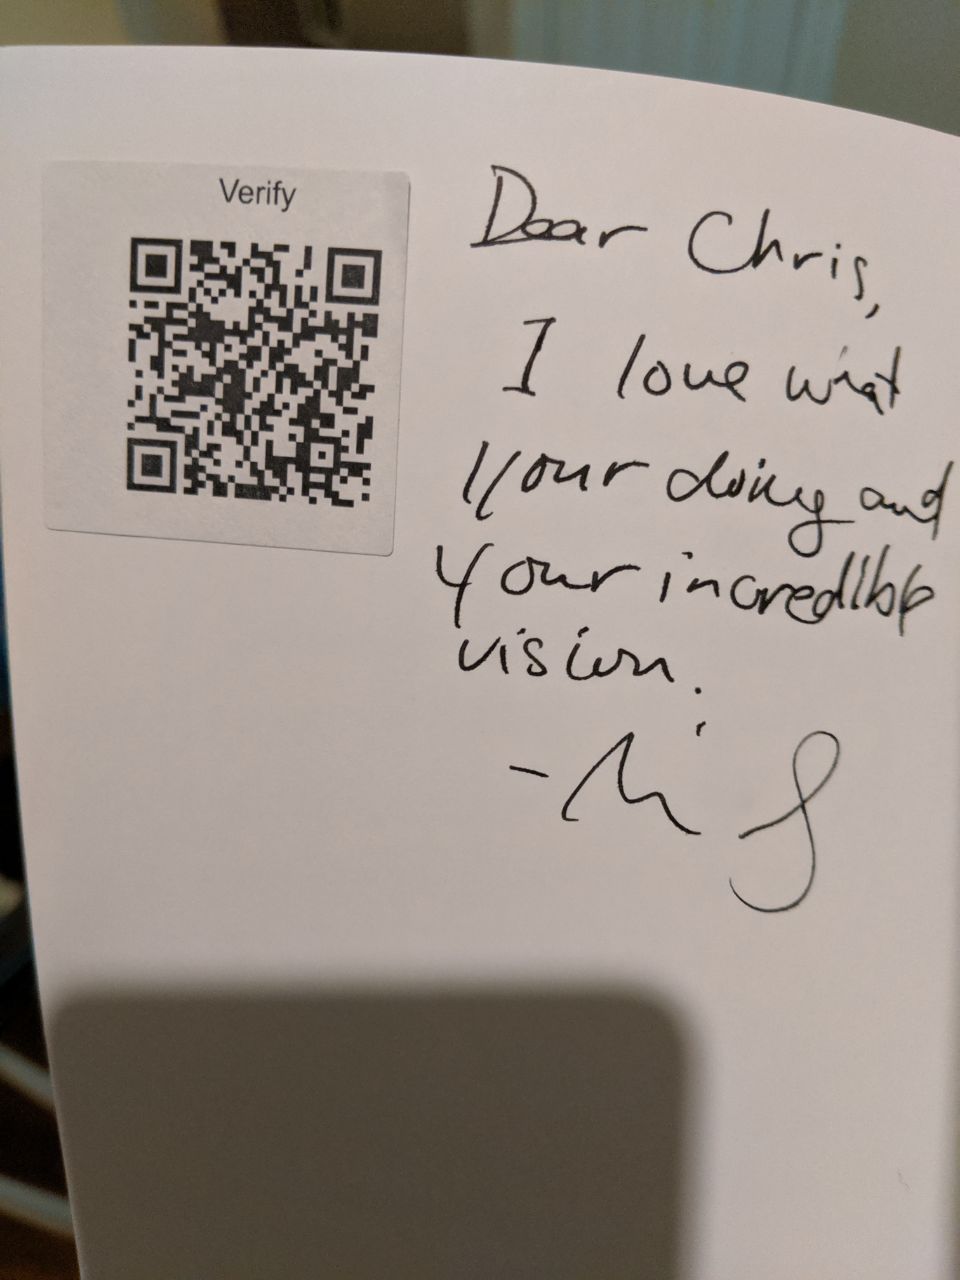 Verify
Dear Chris,
I love what
your doing and
your incredible
vision.